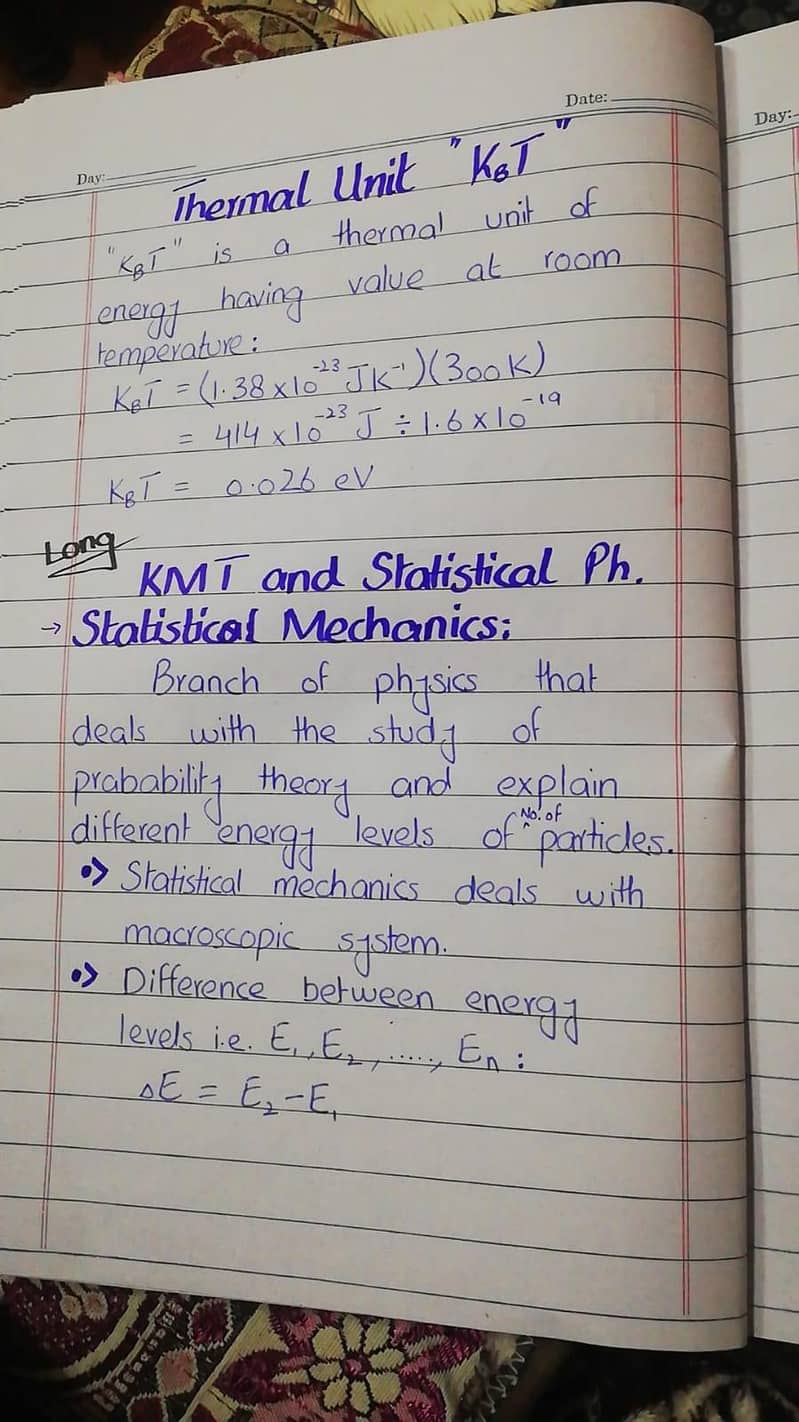 Date:
Day:
Day:
Thermal Unit "KBT"
"KBT" is a thermal unit of
energy having value at room
temperature:
KBT = (1.38 x 10⁻²³ JK⁻¹)(300K)
= 414 x 10⁻²³ J ÷ 1.6 x 10⁻¹⁹
KBT = 0.026 eV
Long
KMT and Statistical Ph.
→ Statistical Mechanics:
Branch of physics that
deals with the study of
prabability theory and explain
different energy levels of ^No. of particles.
•> Statistical mechanics deals with
macroscopic system.
•> Difference between energy
levels i.e. E₁, E₂, ....., Eₙ :
ΔE = E₂ - E₁